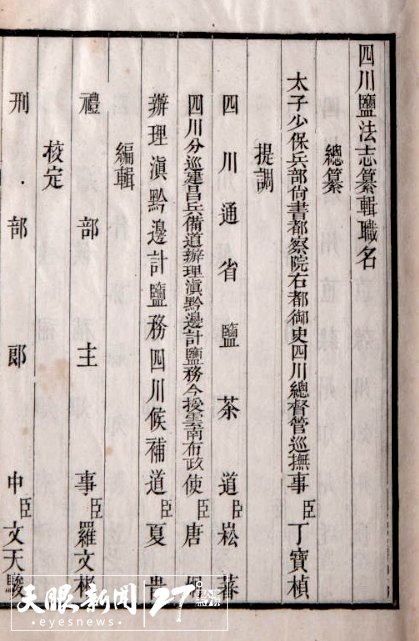 四川鹽法志纂輯職名
總纂
太子少保兵部尚書都察院右都御史四川總督管巡撫事臣丁寶楨
提調
四川通省鹽茶道臣崧蕃
四川分巡建昌兵備道辦理滇黔邊計鹽務今授雲南布政使臣唐
辦理滇黔邊計鹽務四川候補道臣夏
編輯
禮部主事臣羅文彬
校定
刑部郎中臣文天駿
天眼新聞
eyesnews
27°